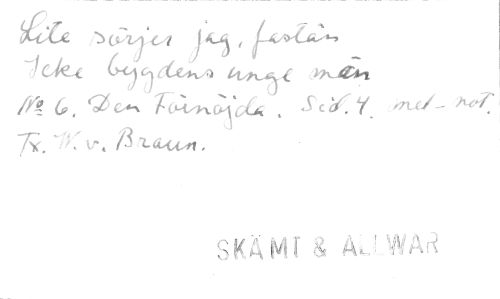 Lite sörjer jag, fastän
Icke bygdens unge män
No 6. Den Förnöjda. Sid. 4. met-not.
Tx. W. v. Braun.
SKÄMT & ALLWAR